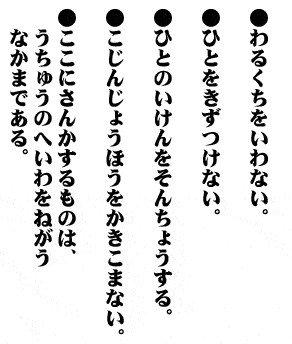 ●わるくちをいわない。
●ひとをきずつけない。
●ひとのいけんをそんちょうする。
●こじんじょうほうをかきこまない。
●ここにさんかするものは、
うちゅうのへいわをねがう
なかまである。